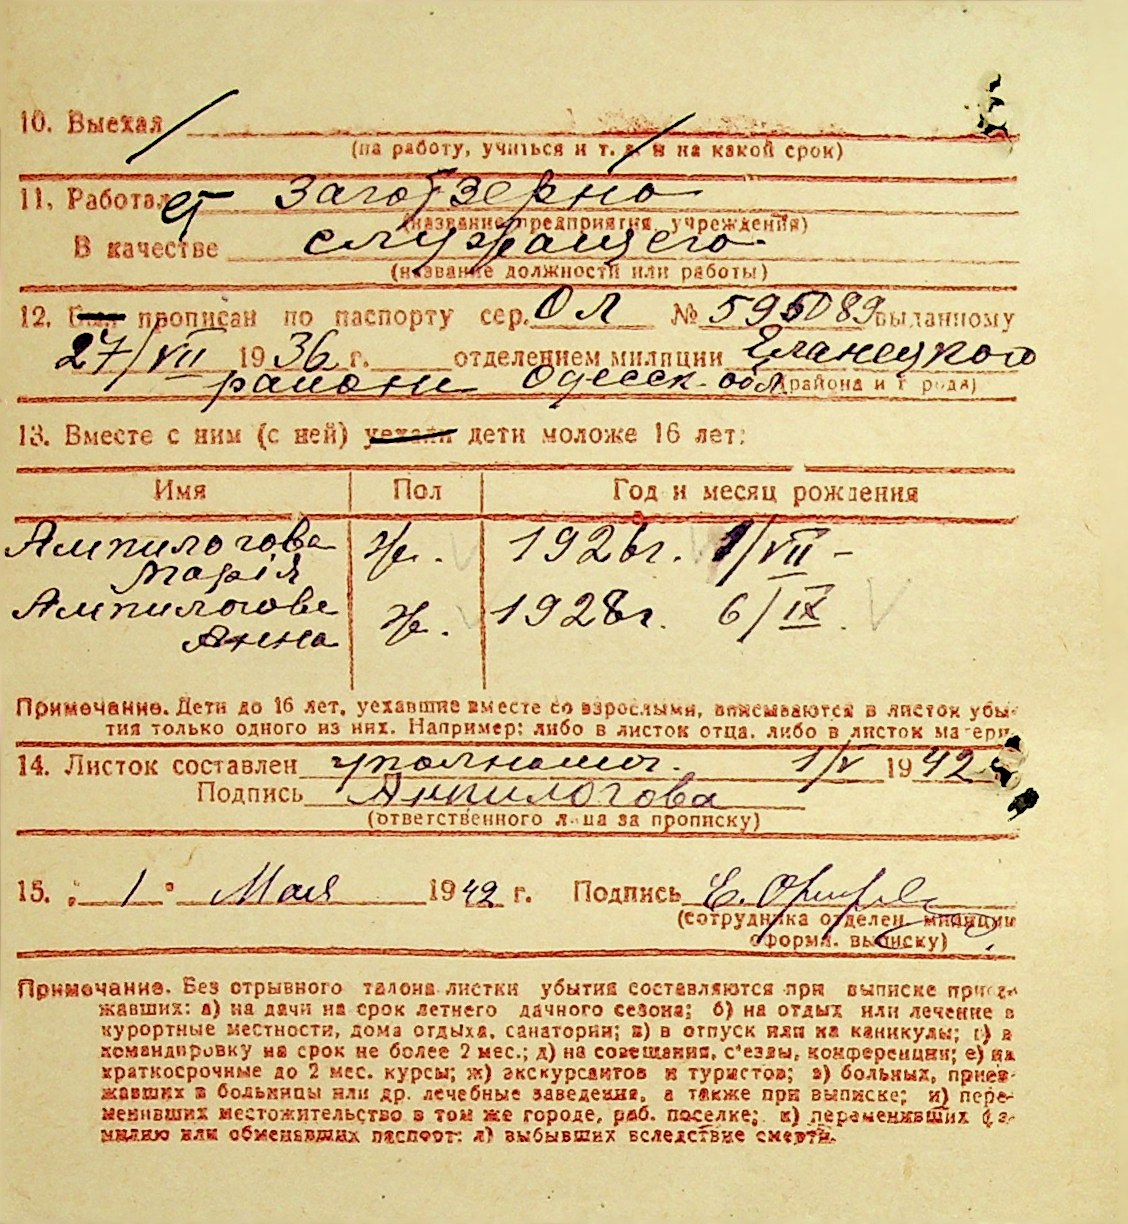 10. Выехал
(на работу, учиться и т. д. и на какой срок)
11. Работает Заготзерно
(название предприятия, учреждения)
В качестве служащего
(название должности или работы)
12. Был прописан по паспорту сер. ОЛ № 595089 выданному
27/VII 1936 г. отделением милиции Еланецкого
района Одесск. обл. (района и города)
13. Вместе с ним (с ней) уехали дети моложе 16 лет:
Имя Пол Год и месяц рождения
Ампилогова ж. 1926г. 1/VII -
Марія
Ампилогова ж. 1928г. 6/IX.
Анна
Примечание. Дети до 16 лет, уехавшие вместе со взрослыми, вписываются в листок убы-
тия только одного из них. Например: либо в листок отца, либо в листок матери
14. Листок составлен 1/V 1942
Подпись Ампилогова
(ответственного лица за прописку)
15. " 1 " Мая 1942 г. Подпись Е.
(сотрудника отделен. милиции
оформ. выписку)
Примечание. Без отрывного талона листки убытия составляются при выписке приез-
жавших: а) на дачи на срок летнего дачного сезона; б) на отдых или лечение в
курортные местности, дома отдыха, санатории; в) в отпуск или на каникулы; г) в
командировку на срок не более 2 мес.; д) на совещания, с'езды, конференции; е) на
краткосрочные до 2 мес. курсы; ж) экскурсантов и туристов; з) больных, приез-
жавших в больницы или др. лечебные заведения, а также при выписке; и) пере-
менивших местожительство в том же городе, раб. поселке; к) переменивших фа-
милию или обменявших паспорт; л) выбывших вследствие смерти.